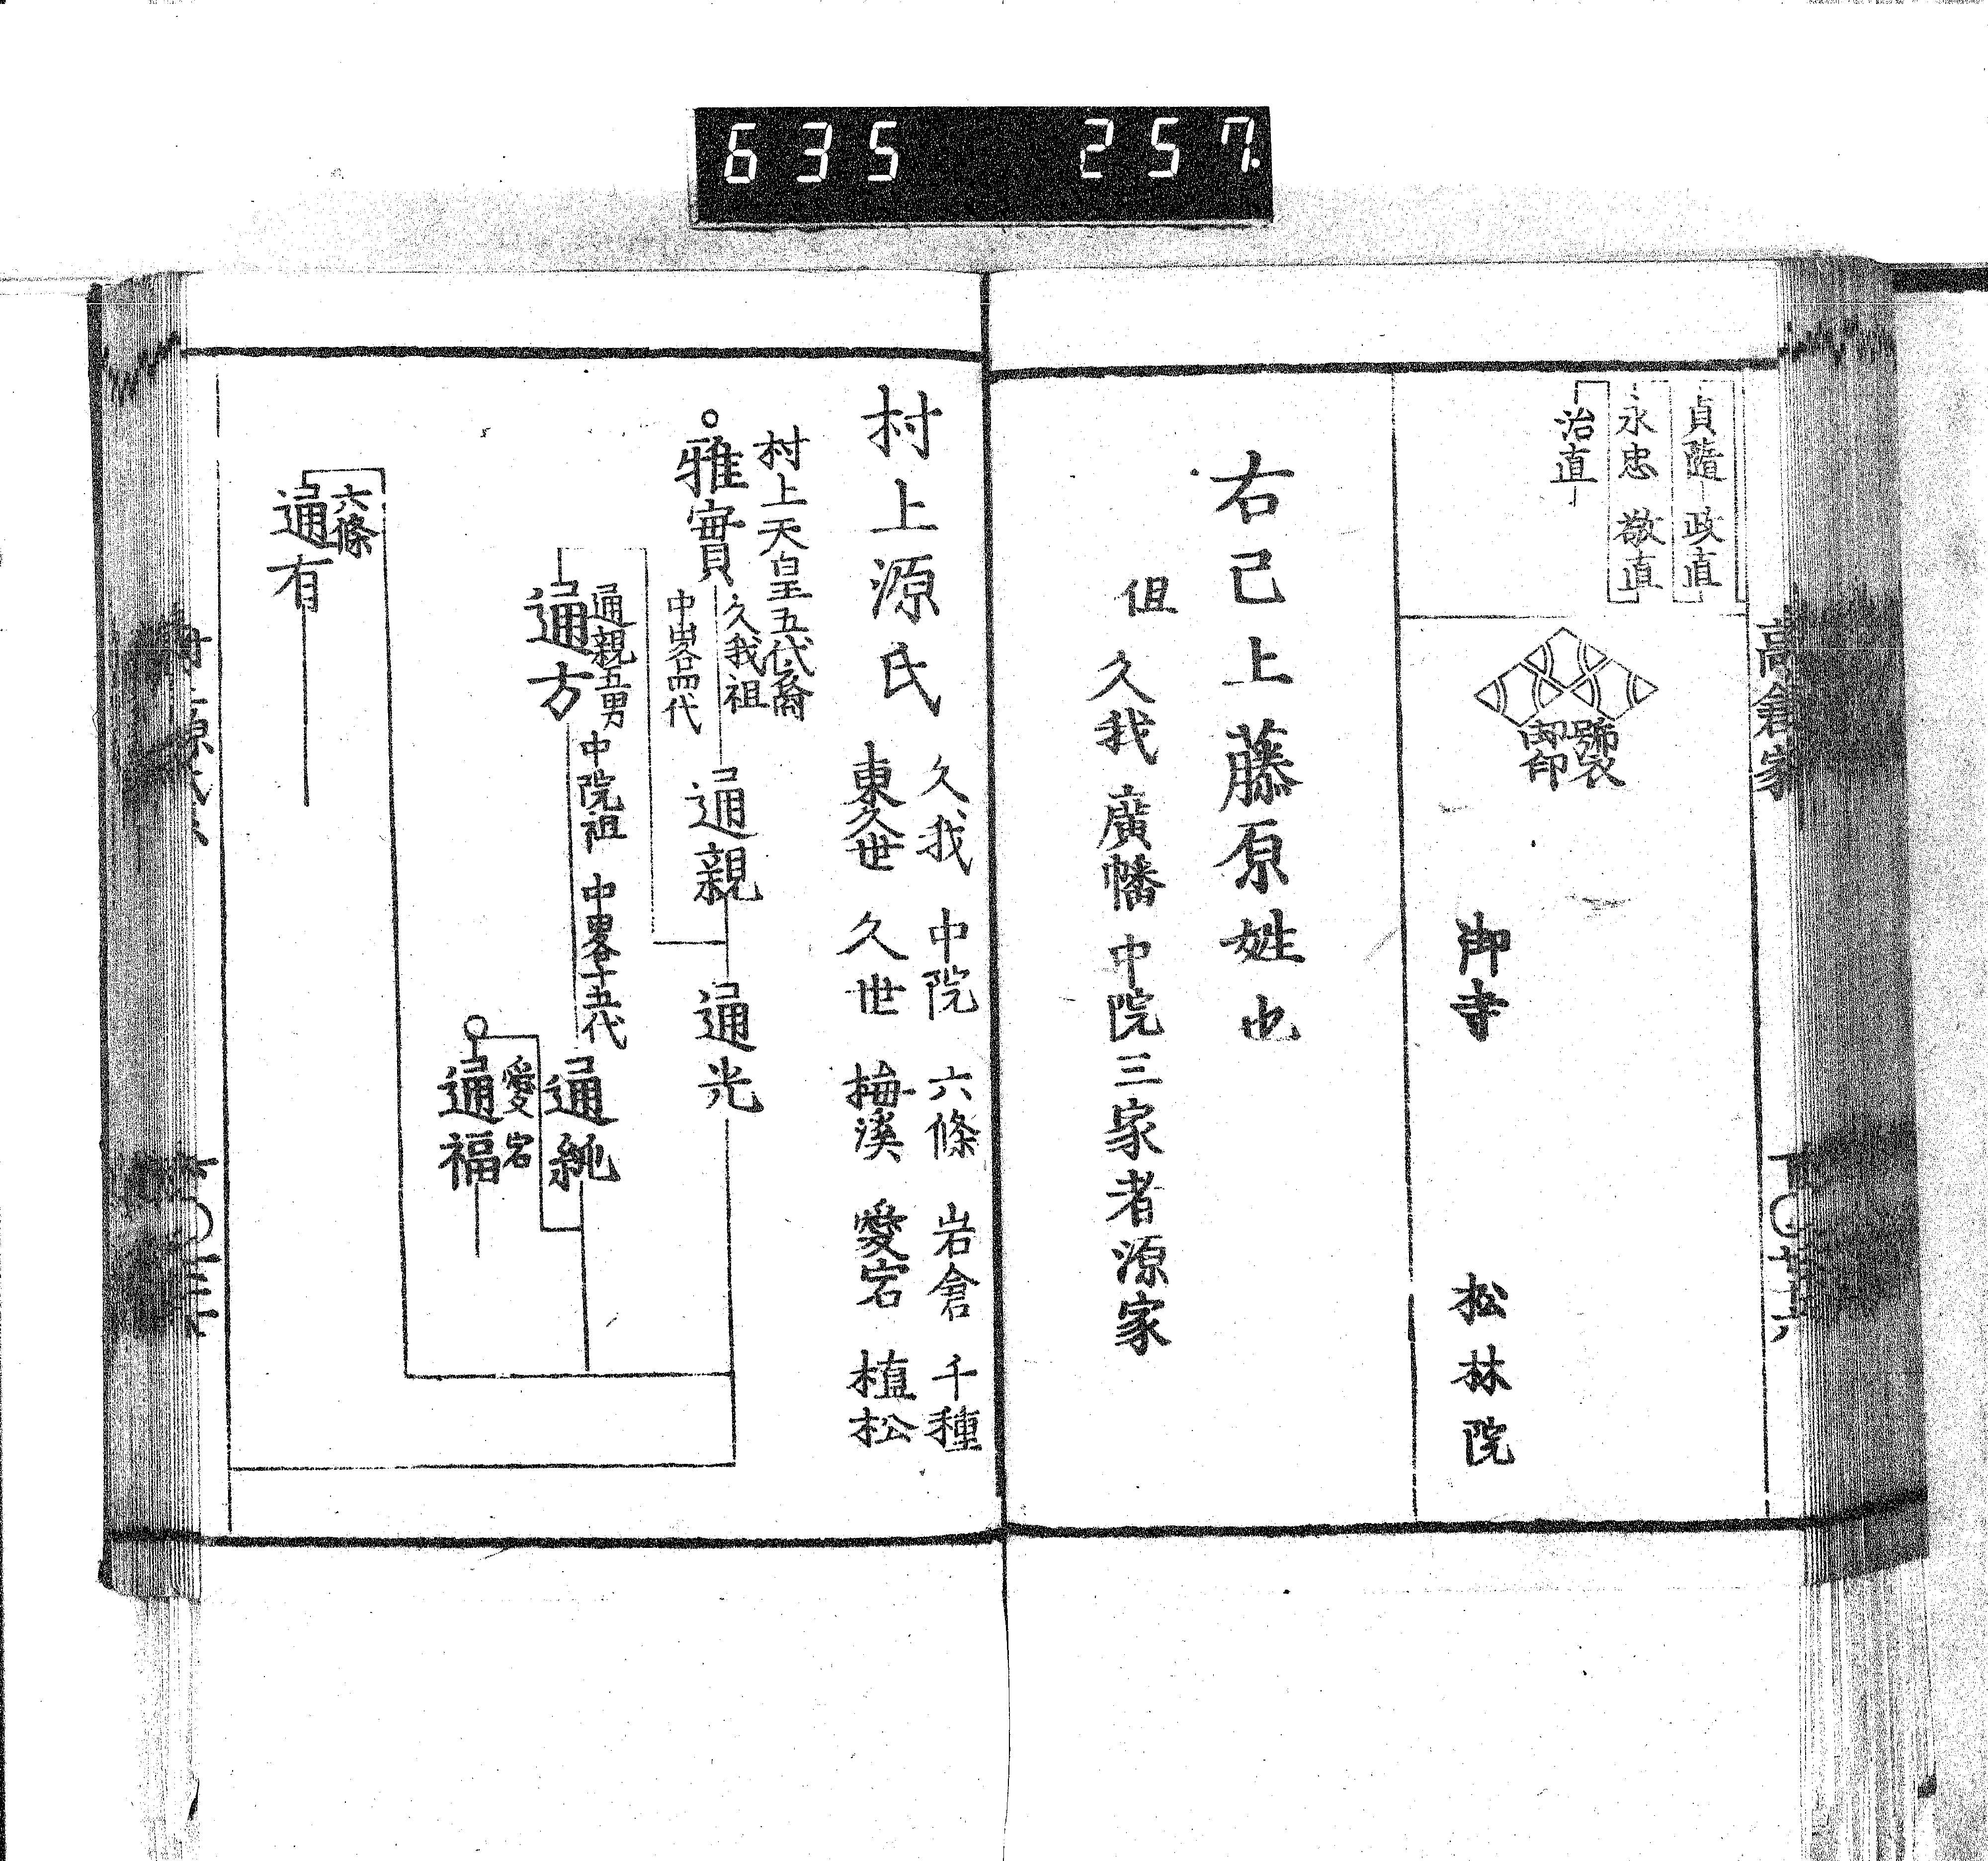 635 257.
貞隨 政直
永忠 敬直
治直
御印
御寺
松林院
右己上藤原姓也
但 久我 廣幡 中院三家者源家
高倉家
村上源氏
久我 中院 六條 岩倉 千種
東久世 久世 梅溪 愛宕 植松
村上天皇五代裔
雅實
久我祖
中畧四代
通親
通光
通親五男
通方
中院祖
中畧十五代
通純
愛宕
通福
六條
通有